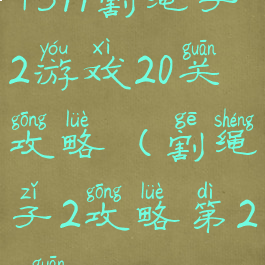 割绳子
yóu xì guān
2游戏20关
gōng lüè gē shéng
攻略（割绳
zǐ gōng lüè dì
子2攻略第2
guān